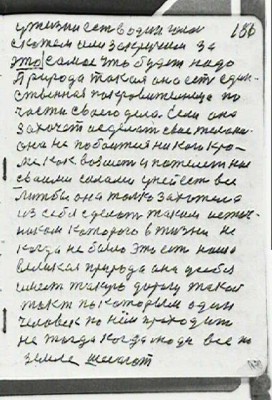 у жизни есть один 186
скажем или закрутим за
это самое что будет надо
Природа такая она есть един-
ственная покровительница по
части своего дела. Если она
захочет сделать свое
она не побоится никого кро-
ме как возьмет и
своими силами у ней есть все
лишь бы она только захотела
из себя сделать таким источ-
ником которого в жизни не
когда не было это есть наша
великая природа она у себя
имеет такую дорогу такой
такт по которым один
человек по нём проходит
не тогда когда люди все на
земле